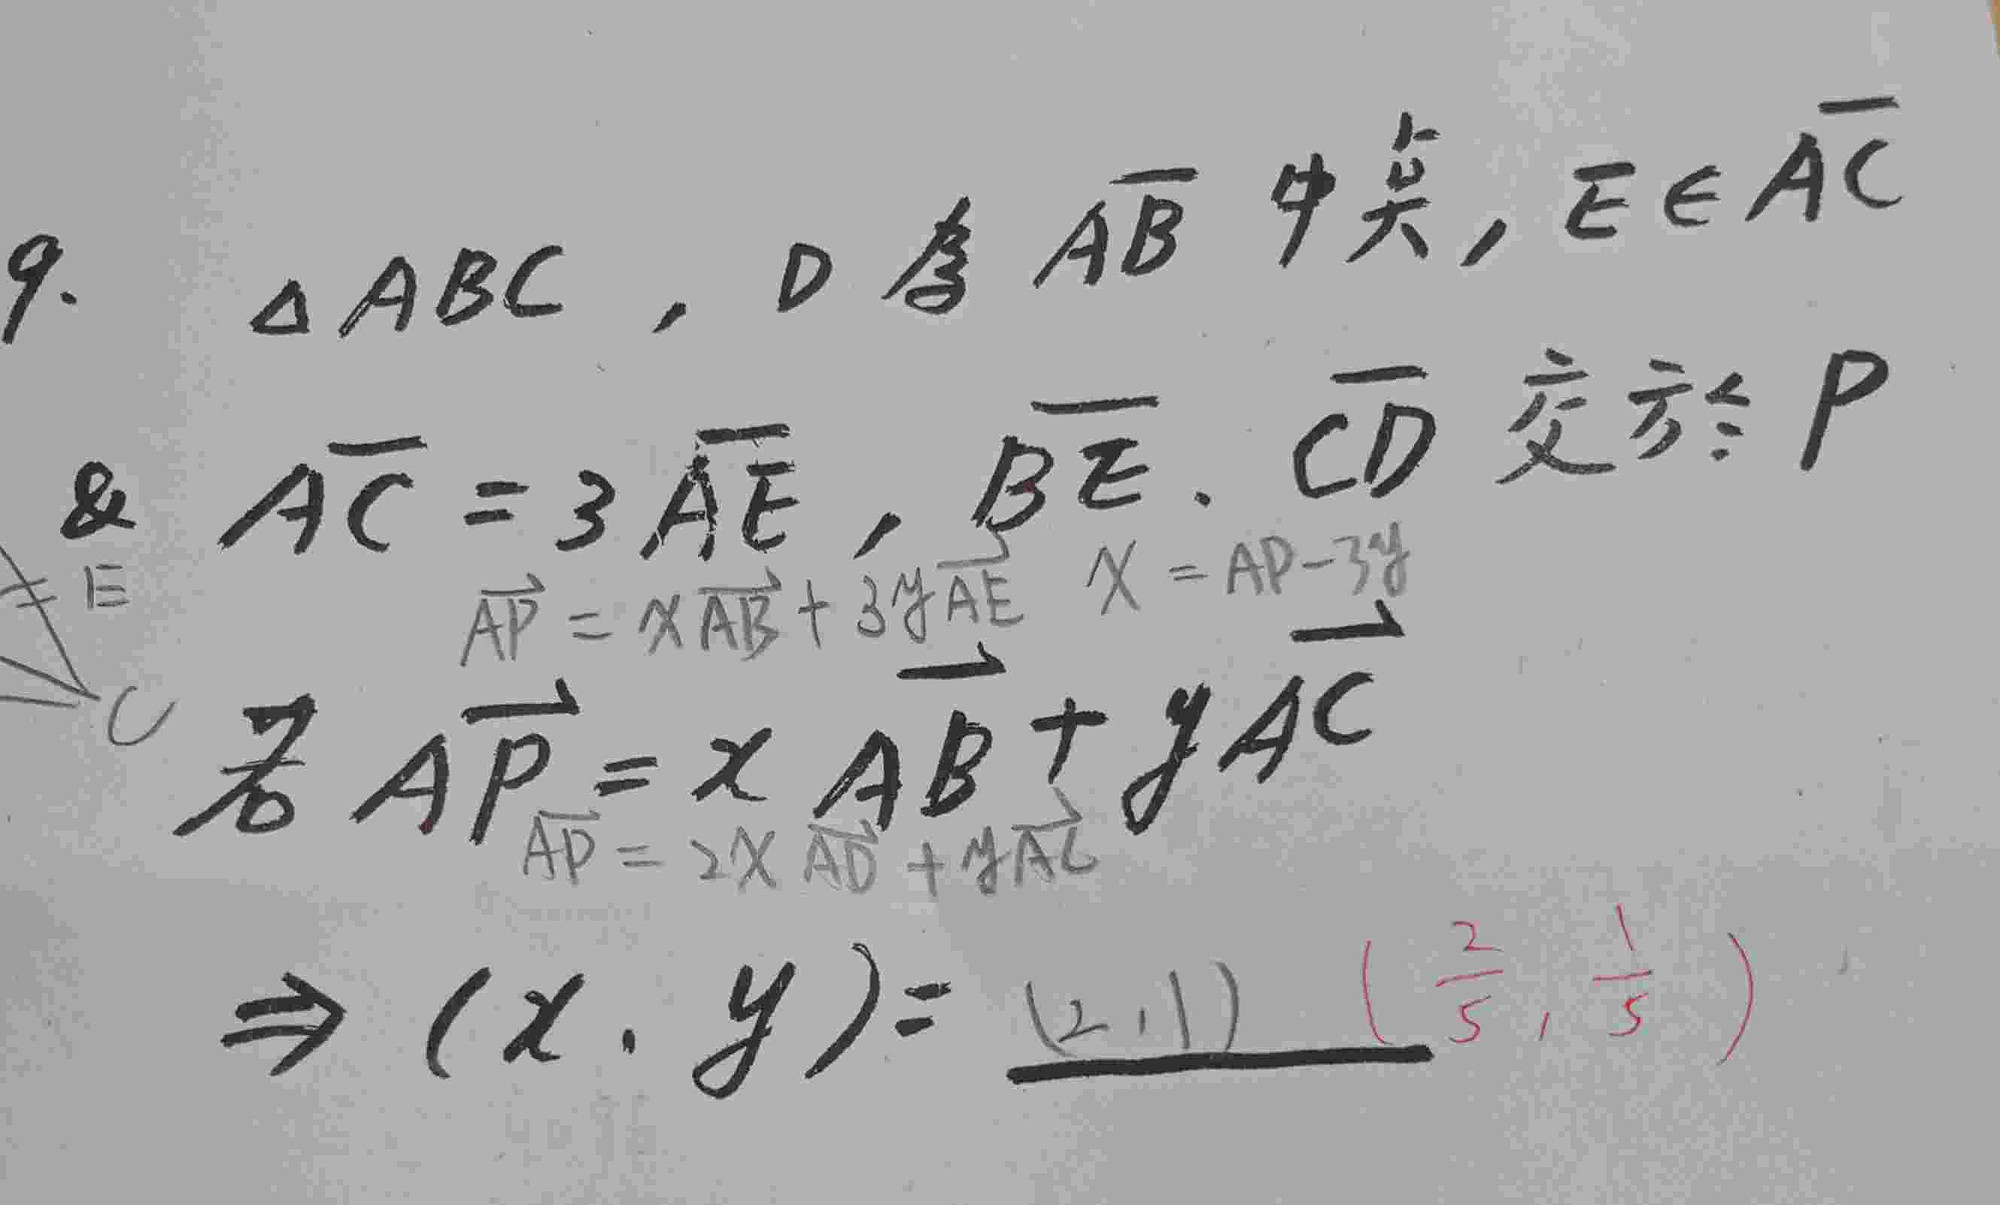 9. △ABC , D為 AB 中点, E∈AC
& AC = 3AE , BE . CD 交於 P
E
AP = xAB + 3yAE x = AP-3y
C
若 AP = x AB + yAC
AP = 2x AD + yAC
⇒ (x . y) = (2,1) (2/5, 1/5)